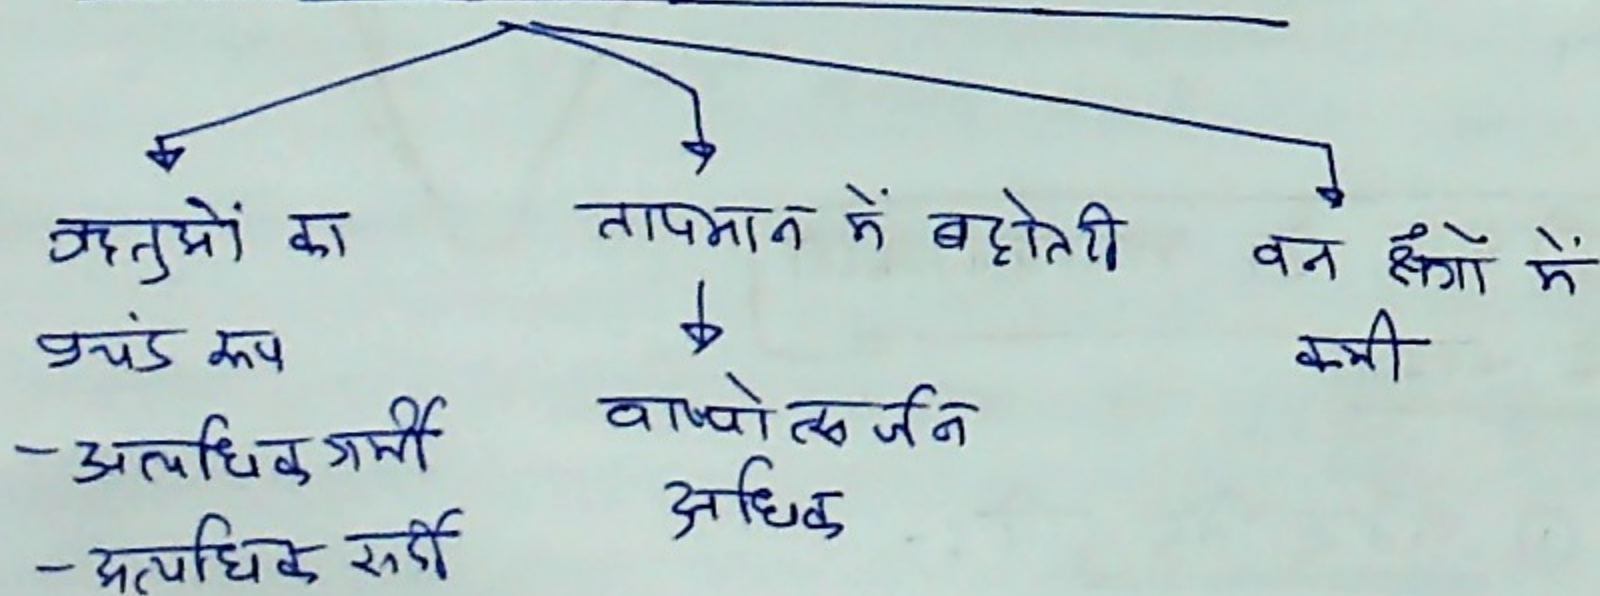 ऋतुओं का
प्रचंड रूप
- अत्यधिक गर्मी
- अत्यधिक सर्दी
तापमान में बढ़ोतरी
वाष्पोत्सर्जन
अधिक
वन में
कमी